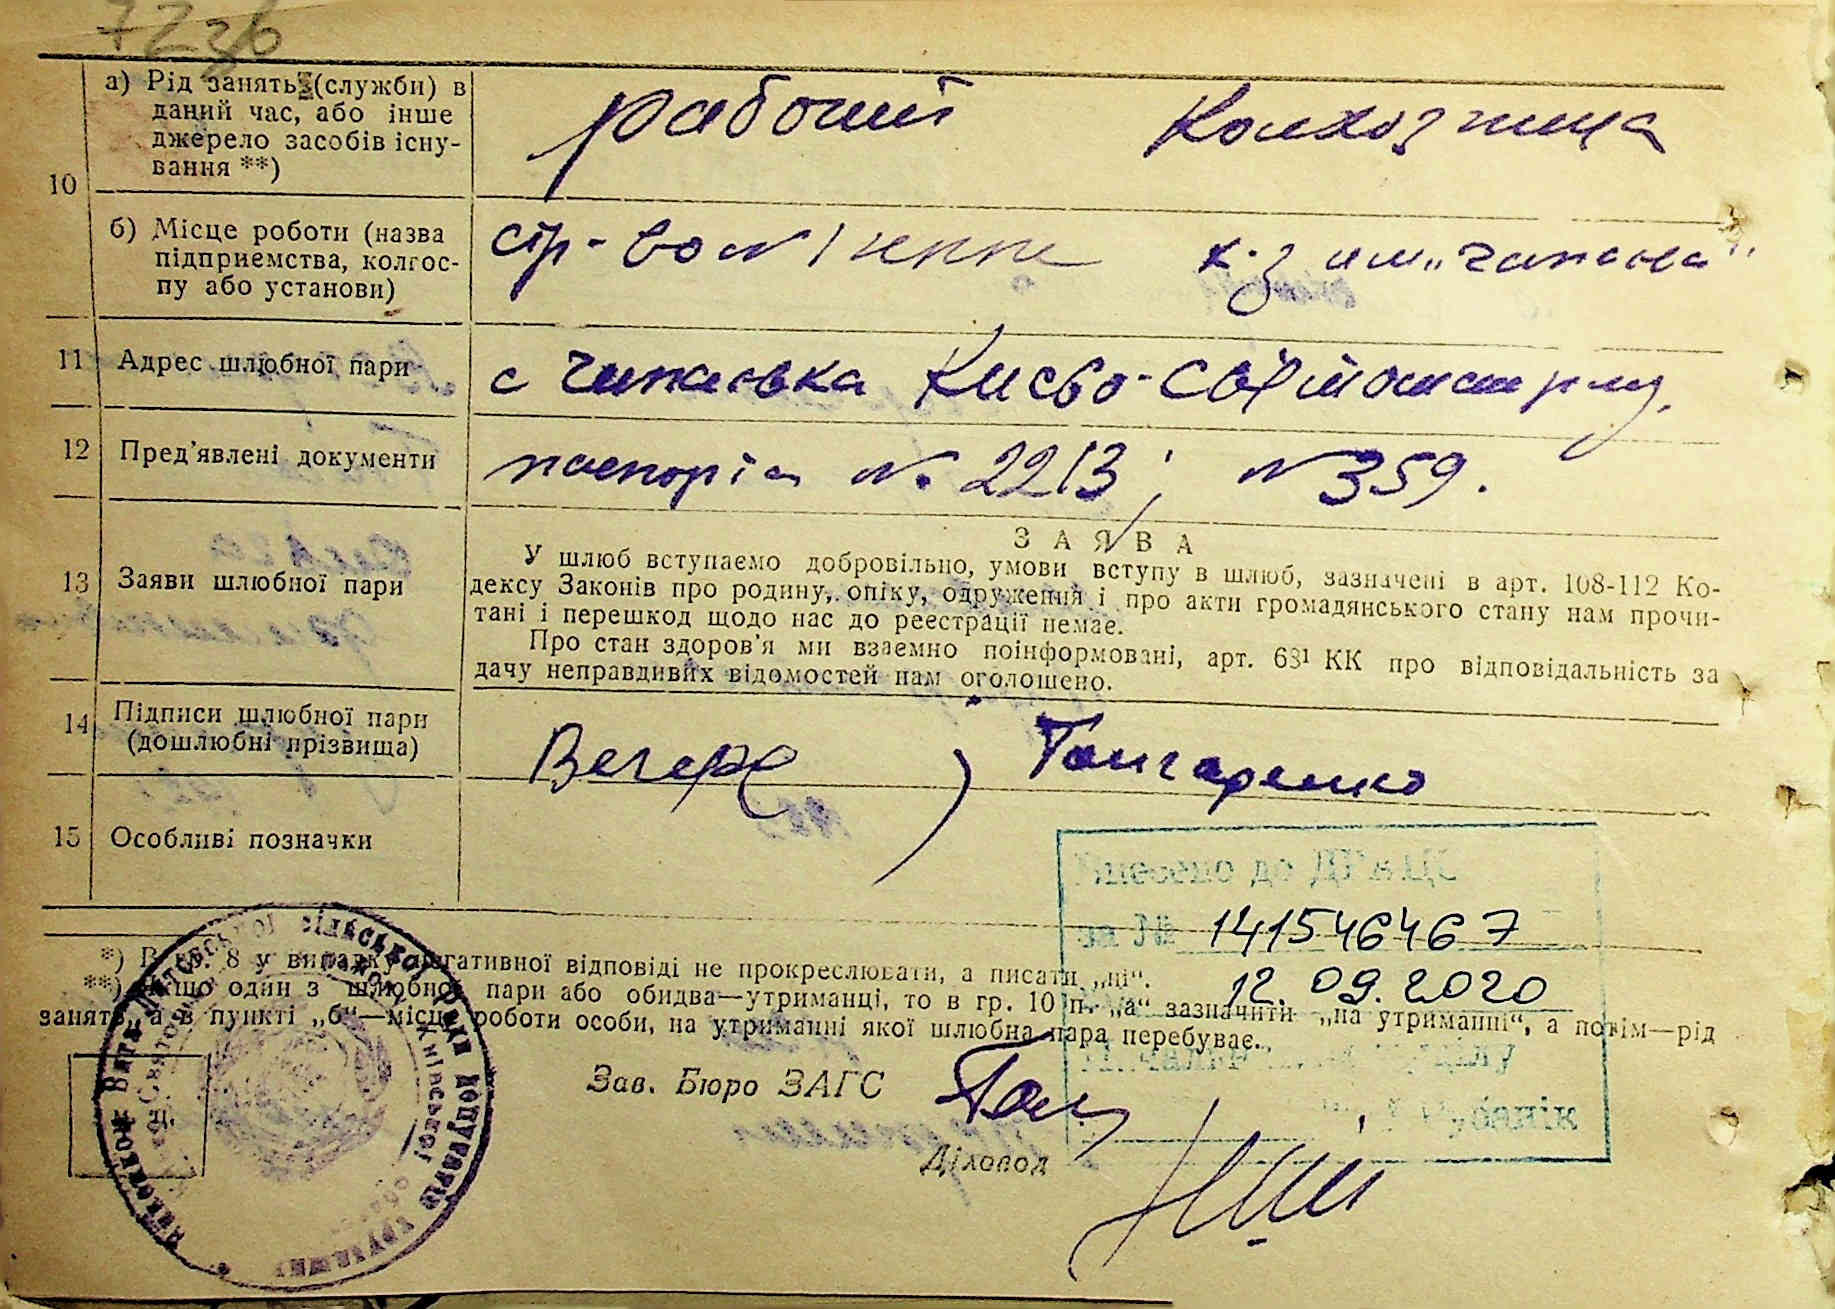 7226
10
а) Рід занять (служби) в
даний час, або інше
джерело засобів існу-
вання **)
рабочий колхозница
б) Місце роботи (назва
підприемства, колгос-
пу або установи)
стр-во к-з им „Чапаева“
11 Адрес шлюбної пари
с Чапаевка Киево-Святошин р-ну.
12 Пред'явлені документи
паспорта № 2213; № 359.
13 Заяви шлюбної пари
ЗАЯВА
У шлюб вступаємо добровільно, умови вступу в шлюб, зазначені в арт. 108-112 Ко-
дексу Законів про родину, опіку, одруження і про акти громадянського стану нам прочи-
тані і перешкод щодо нас до реєстрації немає.
Про стан здоров'я ми взаємно поінформовані, арт. 68¹ КК про відповідальність за
дачу неправдивих відомостей нам оголошено.
14 Підписи шлюбної пари
(дошлюбні прізвища)
Вечера Гончаренко
15 Особливі позначки
Внесено до ДРАЦС
за № 141546467
12.09.2020
*) В гр. 8 у випадку негативної відповіді не прокреслювати, а писати „ні“.
**) Якщо один з шлюбної пари або обидва—утриманці, то в гр. 10 п. „а“ зазначити „на утриманні“, а потім—рід
занять, а в пункті „б“—місце роботи особи, на утриманні якої шлюбна пара перебуває.
Зав. Бюро ЗАГС
Діловод